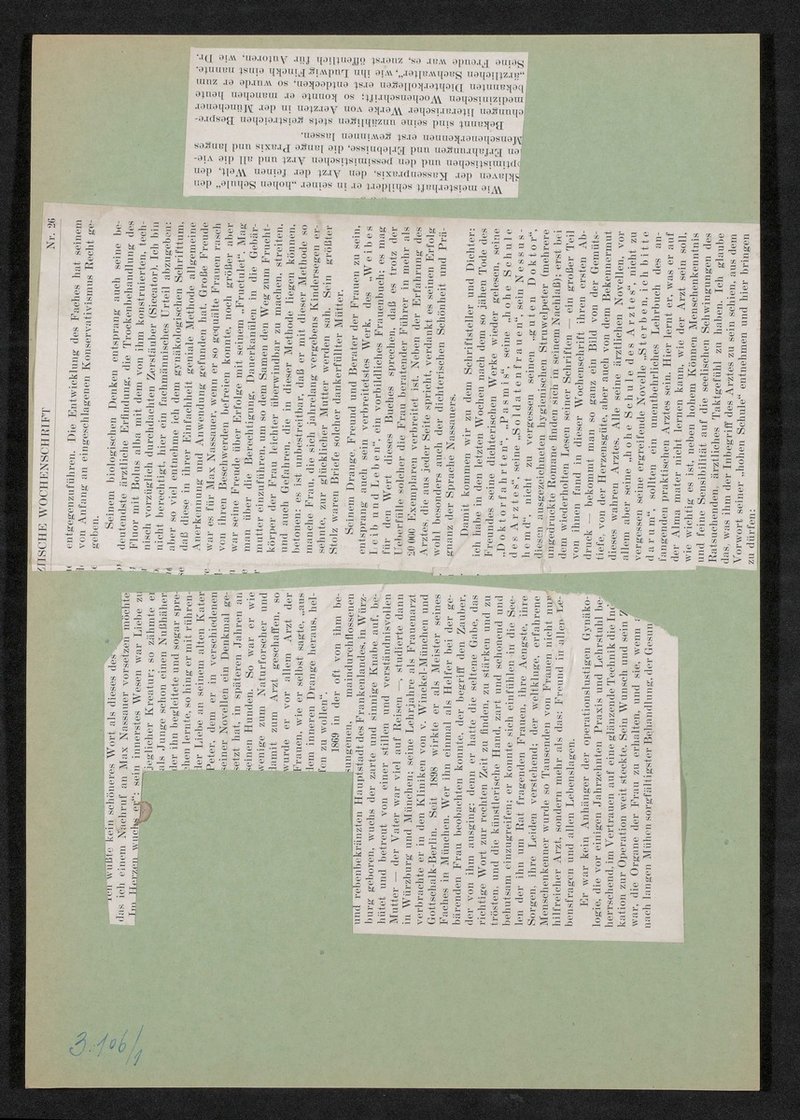 ich wüßte kein schöneres Wort als dieses des
das ich einem Nachruf an Max Nassauer vorsetzen möchte
Im Herzen wuchs er"; sein innerstes Wesen war Liebe zu
jeglicher Kreatur; so zähmte er
als Junge schon einen Nußhäher
der ihn begleitete und sogar spre-
chen lernte, so hing er mit rühren-
der Liebe an seinem alten Kater
Peter, dem er in verschiedenen
seiner Novellen ein Denkmal ge-
setzt hat, in späteren Jahren an
seinen Hunden. So war er wie
wenige zum Naturforscher und
damit zum Arzt geschaffen, so
wurde er vor allem Arzt der
Frauen, wie er selbst sagte, „aus
dem inneren Drange heraus, hel-
fen zu wollen".
1869 in der oft von ihm be-
sungenen, maindurchflossenen
und rebenbekränzten Hauptstadt des Frankenlandes, in Würz-
burg geboren, wuchs der zarte und sinnige Knabe auf, be-
hütet und betreut von einer stillen und verständnisvollen
Mutter — der Vater war viel auf Reisen —, studierte dann
in Würzburg und München; seine Lehrjahre als Frauenarzt
verbrachte er in den Kliniken von v. Winckel-München und
Gottschalk-Berlin. Seit 1898 wirkte er als Meister seines
Faches in München. Wer ihn einmal als Helfer bei der ge-
bärenden Frau beobachten konnte, der begriff den Zauber,
der von ihm ausging; denn er hatte die seltene Gabe, das
richtige Wort zur rechten Zeit zu finden, zu stärken und zu
trösten, und die künstlerische Hand, zart und schonend und
behutsam einzugreifen; er konnte sich einfühlen in die See-
len der ihn um Rat fragenden Frauen, ihre Aengste, ihre
Sorgen, ihre Leiden verstehend; der weltkluge, erfahrene
Menschenkenner wurde so Tausenden von Frauen nicht nur
hilfreicher Arzt, sondern mehr als das: Freund in allen Le-
bensfragen und allen Lebenslagen.
Er war kein Anhänger der operationslustigen Gynäko-
logie, die vor einigen Jahrzehnten Praxis und Lehrstuhl be-
herrschend, im Vertrauen auf eine glänzende Technik die Ind
kation zur Operation weit steckte. Sein Wunsch und sein Z
war, die Organe der Frau zu erhalten, und sie, wenn
nach langen Mühen sorgfältigster Behandlung, der Gesun
ZISCHE WOCHENSCHRIFT Nr. 26
entgegenzuführen. Die Entwicklung des Faches hat seinem
von Anfang an eingeschlagenen Konservativismus Recht ge-
geben.
Seinem biologischen Denken entsprang auch seine be-
deutendste ärztliche Erfindung, die Trockenbehandlung des
Fluor mit Bolus alba mit dem von ihm konstruierten, tech-
nisch vorzüglich durchdachten Zerstäuber (Siccator). Ich bin
nicht berechtigt, hier ein fachmännisches Urteil abzugeben;
aber so viel entnehme ich dem gynäkologischen Schrifttum,
daß diese in ihrer Einfachheit geniale Methode allgemeine
Anerkennung und Anwendung gefunden hat. Große Freude
war es für Max Nassauer, wenn er so gequälte Frauen rasch
von ihren Beschwerden befreien konnte, noch größer aber
war seine Freude über Erfolge mit seinem „Fructulet". Mag
man über die Berechtigung, Dauerkanülen in die Gebär-
mutter einzuführen, um so dem Samen den Weg zum Frucht-
körper der Frau leichter überwindbar zu machen, streiten,
und auch Gefahren, die in dieser Methode liegen können,
betonen; es ist unbestreitbar, daß er mit dieser Methode so
manche Frau, die sich jahrelang vergebens Kindersegen er-
sehnte, zur glücklicher Mutter werden sah. Sein größter
Stolz waren Briefe solcher dankerfüllter Mütter.
Seinem Drange, Freund und Berater der Frauen zu sein,
entsprang auch sein verbreitetstes Werk, des „Weibes
Leib und Leben", ein vorbildliches Frauenbuch; es mag
für den Wert dieses Buches sprechen, daß es trotz der
Ueberfülle solcher die Frau beratender Führer in mehr als
20 000 Exemplaren verbreitet ist. Neben der Erfahrung des
Arztes, die aus jeder Seite spricht, verdankt es seinen Erfolg
wohl besonders auch der dichterischen Schönheit und Prä-
gnanz der Sprache Nassauers.
Damit kommen wir zu dem Schriftsteller und Dichter;
ich habe in den letzten Wochen nach dem so jähen Tode des
Freundes seine dichterischen Werke wieder gelesen, seine
„Doktorfahrten", „Jasmis", seine „hohe Schule
des Arztes", seine „Soldatenfrauen", sein „Nessus-
hemd", nicht zu vergessen seinen „guten Doktor",
diesen ausgezeichneten hygienischen Struwelpeter (mehrere
ungedruckte Romane finden sich in seinem Nachlaß); erst bei
dem wiederholten Lesen seiner Schriften — ein großer Teil
von ihnen fand in dieser Wochenschrift ihren ersten Ab-
druck — bekommt man so ganz ein Bild von der Gemüts-
tiefe, von der Herzensgüte, aber auch von dem Bekennermut
dieses wahren Arztes. Seine ärztlichen Novellen, vor
allem aber seine „hohe Schule des Arztes", nicht zu
vergessen seine ergreifende Novelle „Sterben, ich bitte
darum", sollten ein unentbehrliches Lehrbuch des an-
fangenden praktischen Arztes sein. Hier lernt er, was er auf
der Alma mater nicht lernen kann, wie der Arzt sein soll,
wie wichtig es ist, neben hohem Können Menschenkenntnis
und feine Sensibilität auf die seelischen Schwingungen des
Ratsuchenden, ärztliches Taktgefühl zu haben. Ich glaube
das, was ihm der Inbegriff des Arztes zu sein schien, aus dem
Vorwort seiner „hohen Schule" entnehmen und hier bringen
zu dürfen:
Wie meisterhaft schildert er in seiner „hohen Schule" den
Sklaven der Kassenpraxis, den Arzt der feinen Welt, den
optimistischen und den pessimistischen Arzt und all die vie-
len Erfahrungen und Erlebnisse, die lange Praxis und langes
Menschenerkennen erst gewinnen lassen.
Bekannt sind seine unzähligen stets geistreichen Bespre-
chungen literarischer Werke von Aerzten in der Münchener
medizinischen Wochenschrift; so konnte er manchen heute
bekannten Dichterkollegen erst entdecken, so wurde er zum
„ärztlichen Sachwalter", wie ihn Ludwig Finckh einst nannte.
Seine Freude war es, zuerst öffentlich für Autoren, wie Dr.
3.106/1